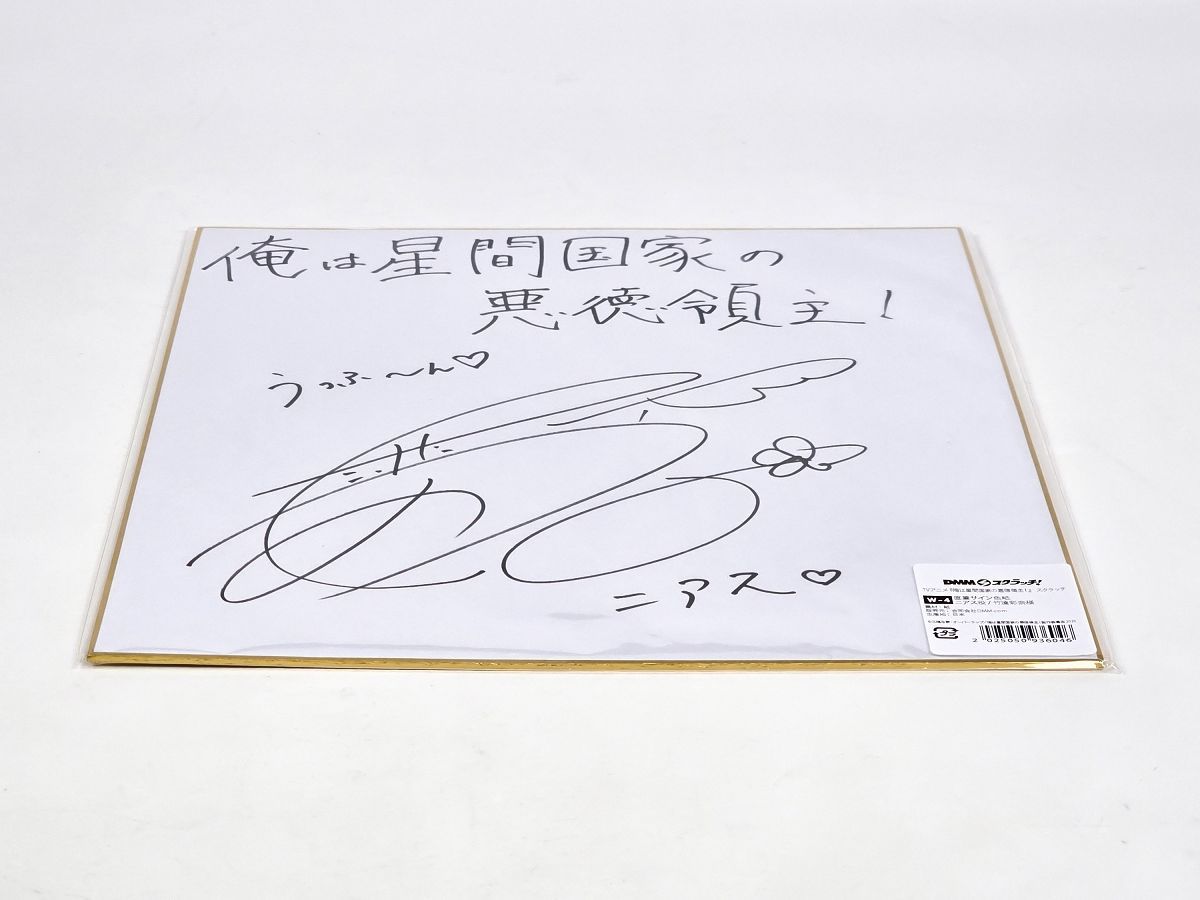 俺は星間国家の
悪徳領主!
うっふ〜ん♡
ニアス♡
DMMスクラッチ!
TVアニメ『俺は星間国家の悪徳領主!』 スクラッチ
W-4 直筆サイン色紙
ニアス役/竹達彩奈様
素材:紙
販売元:合同会社DMM.com
生産地:日本
2 025050 936046